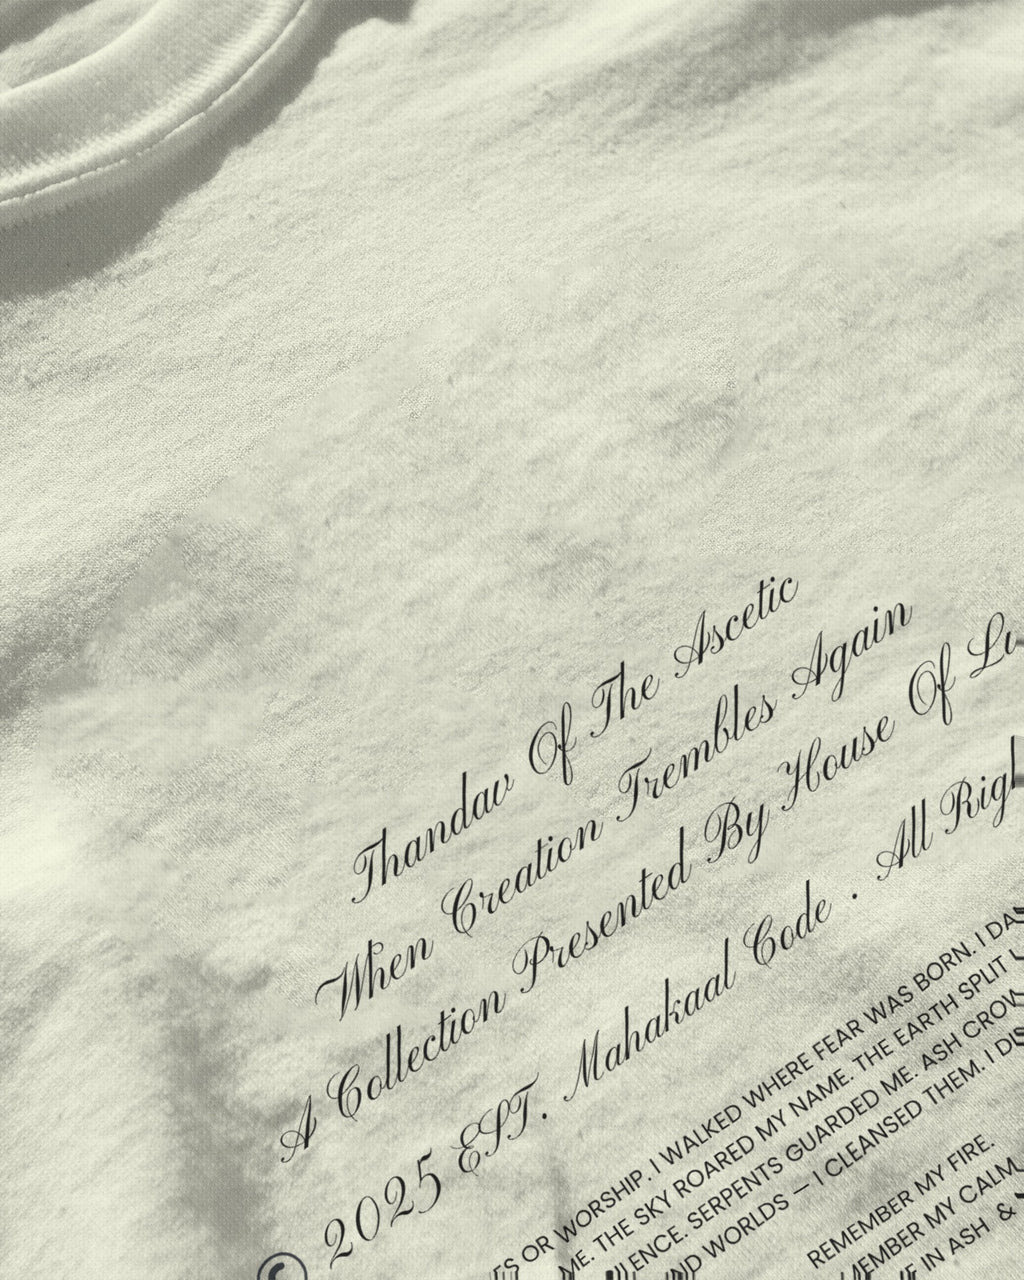 Thandav Of The Ascetic
When Creation Trembles Again
A Collection Presented By House Of
© 2025 EST. Mahakaal Code . All
OR WORSHIP. I WALKED WHERE FEAR WAS BORN. I
ME. THE SKY ROARED MY NAME. THE EARTH SPLIT
SERPENTS GUARDED ME. ASH
WORLDS — I CLEANSED THEM. I
REMEMBER MY FIRE.
MY CALM
IN ASH &